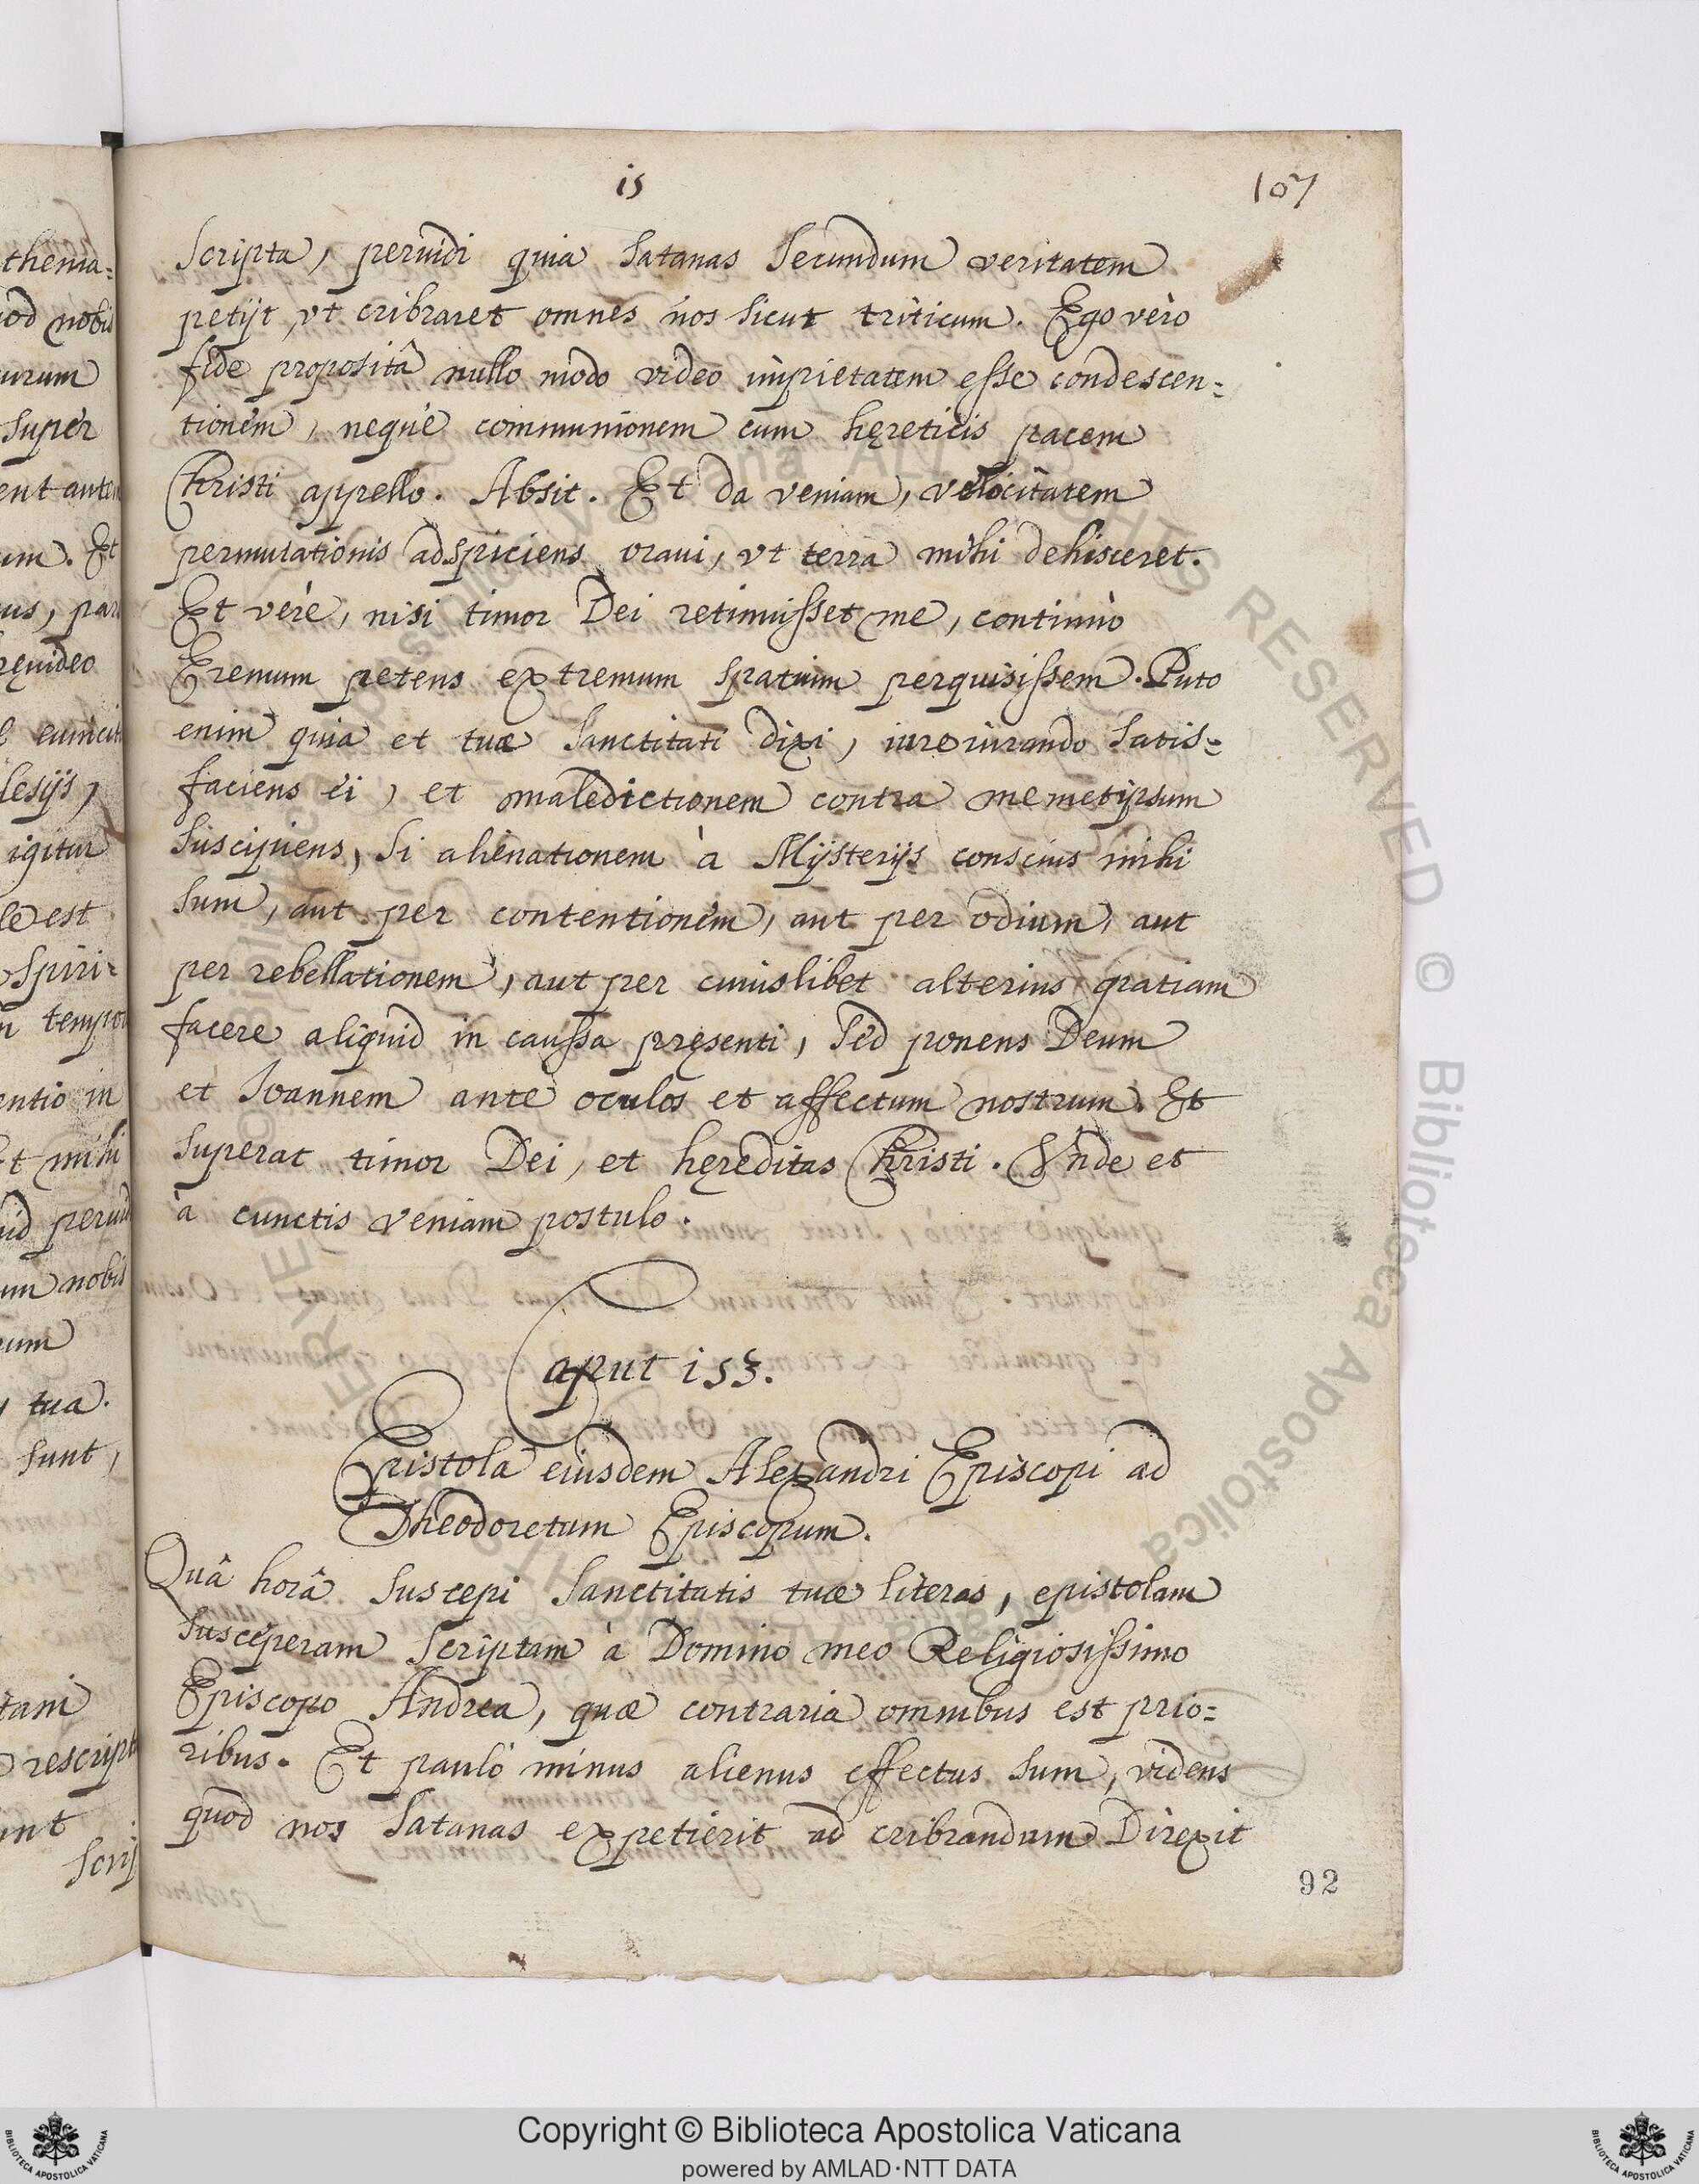 is
107
scripta, peruidi quia satanas secundum veritatem
petijt, vt cribraret omnes nos sicut triticum. Ego verò
fide propositâ nullo modo video impietatem esse condescen=
tionem, neque communionem cum hęreticis pacem
Christi appello. Absit. Et da veniam, velocitatem
permutationis adspiciens oraui, vt terra mihi dehisceret.
Et verè, nisi timor Dei retinuisset me, continuò
Eremum petens extremum spatium perquisissem. Puto
enim quia et tuæ sanctitati dixi, iureiurando satis=
faciens ei, et maledictionem contra memetipsum
suscipiens, si alienationem à Mysterijs conscius mihi
sum, aut per contentionem, aut per odium, aut
per rebellationem, aut per cuiuslibet alterius gratiam
facere aliquid in caussa pręsenti, sed ponens Deum
et Ioannem ante oculos et affectum nostrum. Et
superat timor Dei, et hęreditas Christi. Vnde et
à cunctis veniam postulo.
Caput 153.
Epistola eiusdem Alexandri Episcopi ad
Theodoretum Episcopum.
Quâ horâ suscepi sanctitatis tuæ literas, epistolam
susceperam scriptam à Domino meo Religiosissimo
Episcopo Andrea, quæ contraria omnibus est prio=
ribus. Et paulò minus alienus effectus sum, videns
quod nos satanas expetierit ad cribrandum. Direxit
92
thema=
nobis
super
um. Et
lesijs,
igitur
est
spiri=
in
mihi
nobis
tua.
sunt,
Copyright © Biblioteca Apostolica Vaticana
powered by AMLAD·NTT DATA